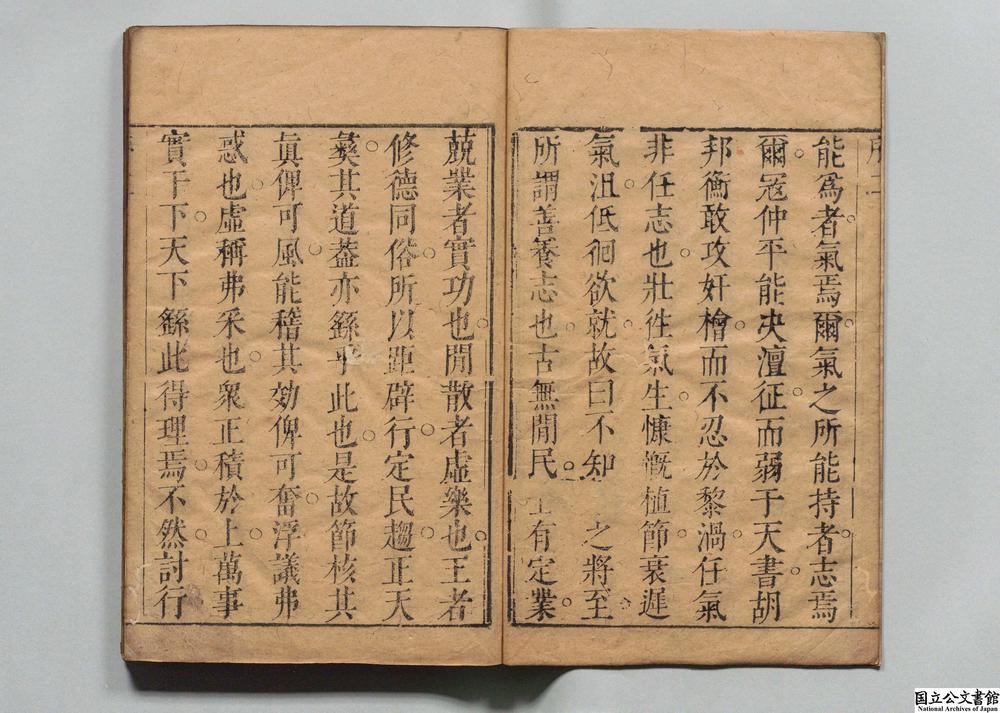 能爲者氣焉爾氣之所能持者志焉
爾冦仲平能决澶征而弱于天書胡
邦衡敢攻奸檜而不忍於黎渦任氣
非任志也壯徃氣生慷慨植節衰遲
氣沮低徊欲就故曰不知 之將至
所謂善養志也古無閒民 有定業
兢業者實功也閒散者虛樂也王者
修德同俗所以距辟行定民趨正天
彜其道葢亦繇乎此也是故節核其
眞俾可風能稽其効俾可奮浮議弗
惑也虛稱弗釆也衆正積於上萬事
實于下天下繇此得理焉不然討行
国立公文書館
National Archives of Japan